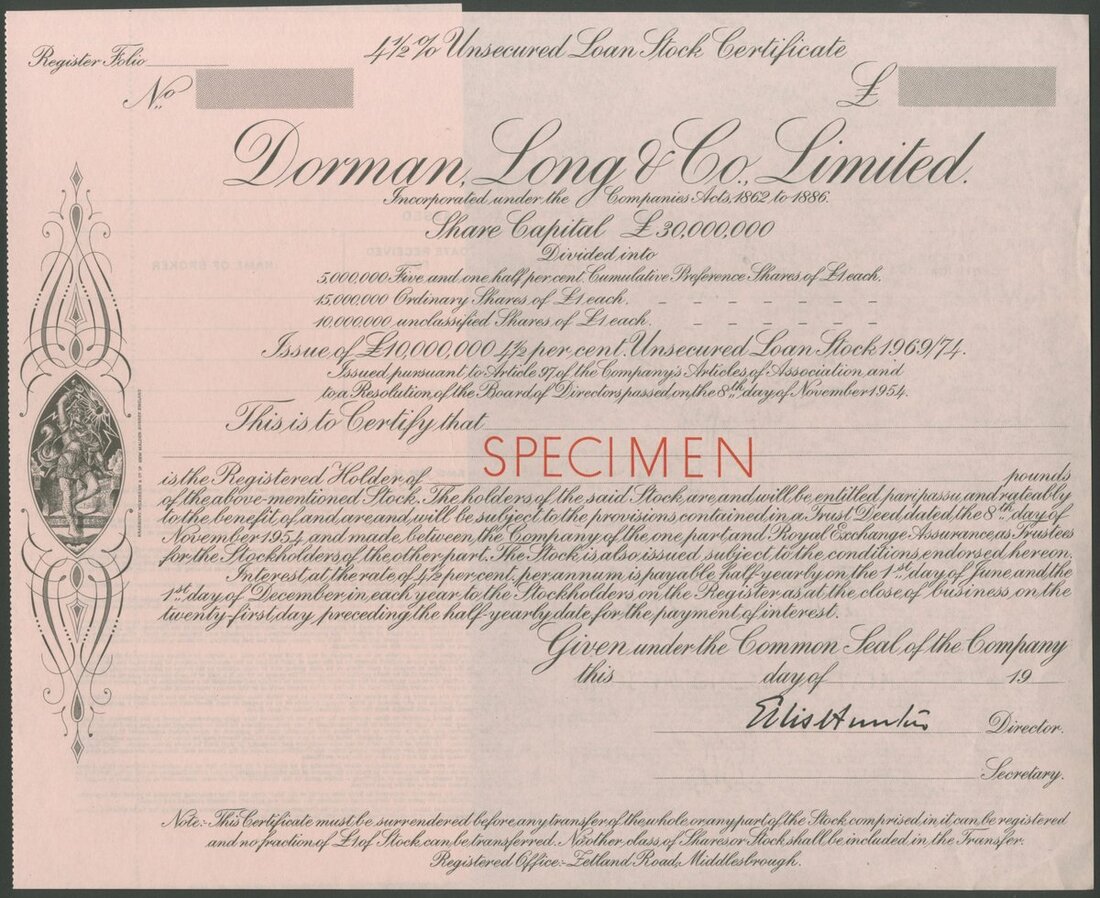 4½% Unsecured Loan Stock Certificate
Register Folio
No.
£
Dorman, Long & Co., Limited.
Incorporated under the Companies Acts, 1862 to 1886.
Share Capital £30,000,000
Divided into
5,000,000 Five and one half per cent. Cumulative Preference Shares of £1 each.
15,000,000 Ordinary Shares of £1 each.
10,000,000 unclassified Shares of £1 each.
Issue of £10,000,000 4½ per cent. Unsecured Loan Stock 1969/74.
Issued pursuant to Article 97 of the Company's Articles of Association and
to a Resolution of the Board of Directors passed on the 8th day of November 1954.
This is to Certify that
SPECIMEN
is the Registered Holder of pounds
of the above-mentioned Stock. The holders of the said Stock are and will be entitled pari passu and rateably
to the benefit of and are and will be subject to the provisions contained in a Trust Deed dated the 8th day of
November 1954 and made between the Company of the one part and Royal Exchange Assurance as Trustees
for the Stockholders of the other part. The Stock is also issued subject to the conditions endorsed hereon.
Interest at the rate of 4½ per cent. per annum is payable half-yearly on the 1st day of June and the
1st day of December in each year to the Stockholders on the Register as at the close of business on the
twenty-first day preceding the half-yearly date for the payment of interest.
Given under the Common Seal of the Company
this day of 19
Ellis Hunter
Director.
Secretary.
Note:- This Certificate must be surrendered before any transfer of the whole or any part of the Stock comprised in it can be registered
and no fraction of £1 of Stock can be transferred. No other class of Shares or Stock shall be included in the Transfer.
Registered Office:- Zetland Road, Middlesbrough.